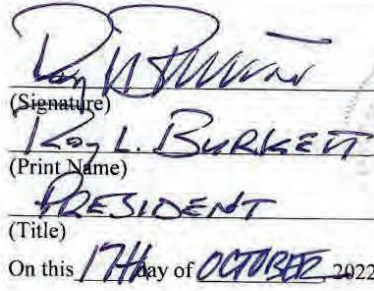 (Signature)
Roy L. BURKETT
(Print Name)
PRESIDENT
(Title)
On this 17th day of OCTOBER 2022